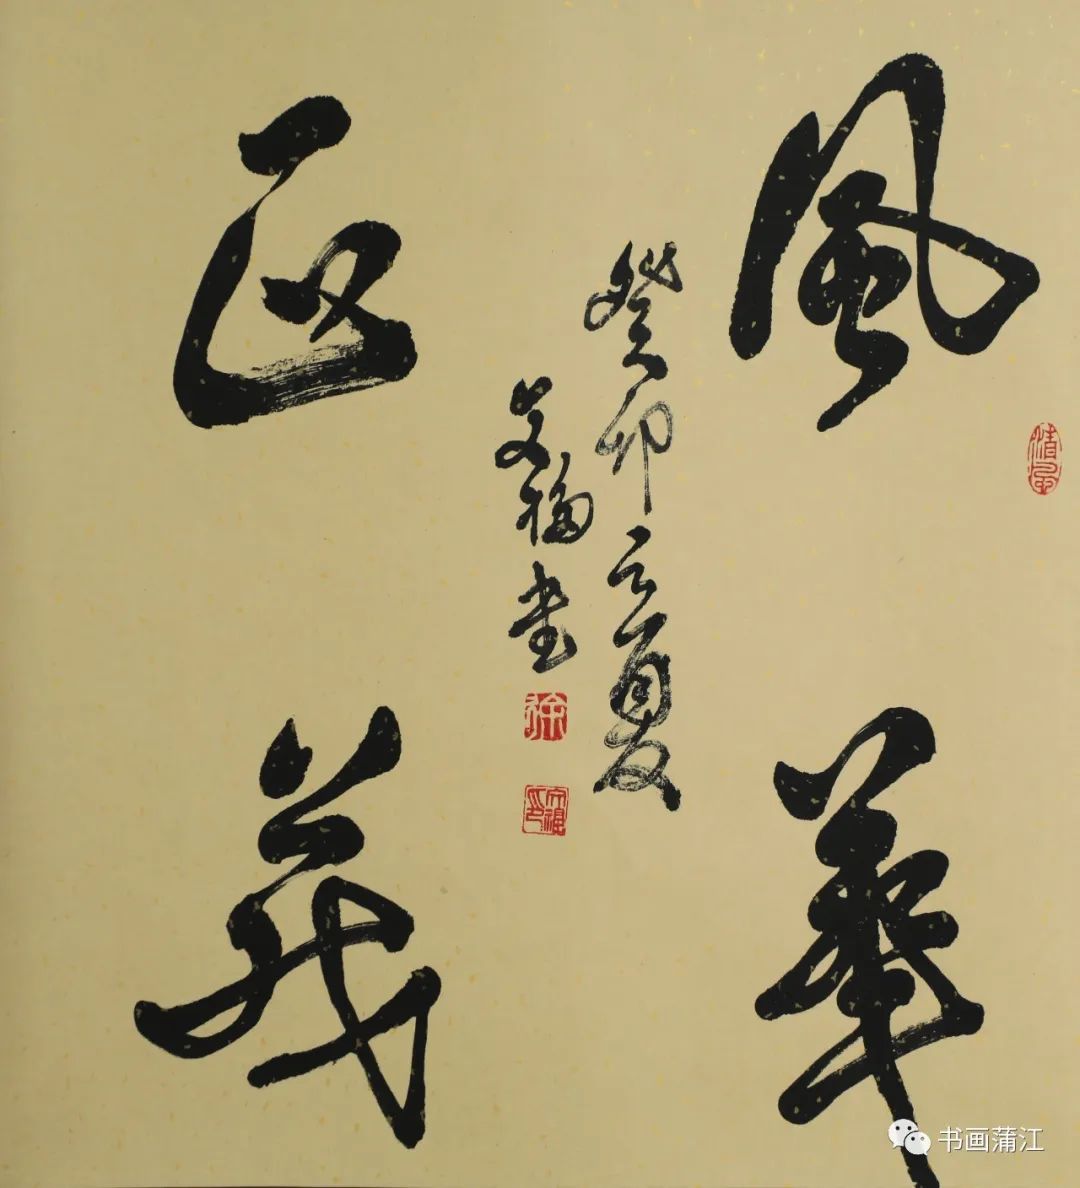 風華
正茂
癸卯之夏
文福書
徐
文福印
书画蒲江